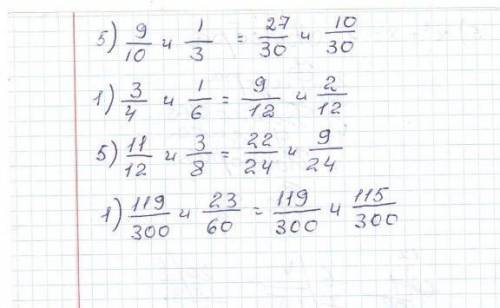 5) 9/10 и 1/3 = 27/30 и 10/30
1) 3/4 и 1/6 = 9/12 и 2/12
5) 11/12 и 3/8 = 22/24 и 9/24
1) 119/300 и 23/60 = 119/300 и 115/300